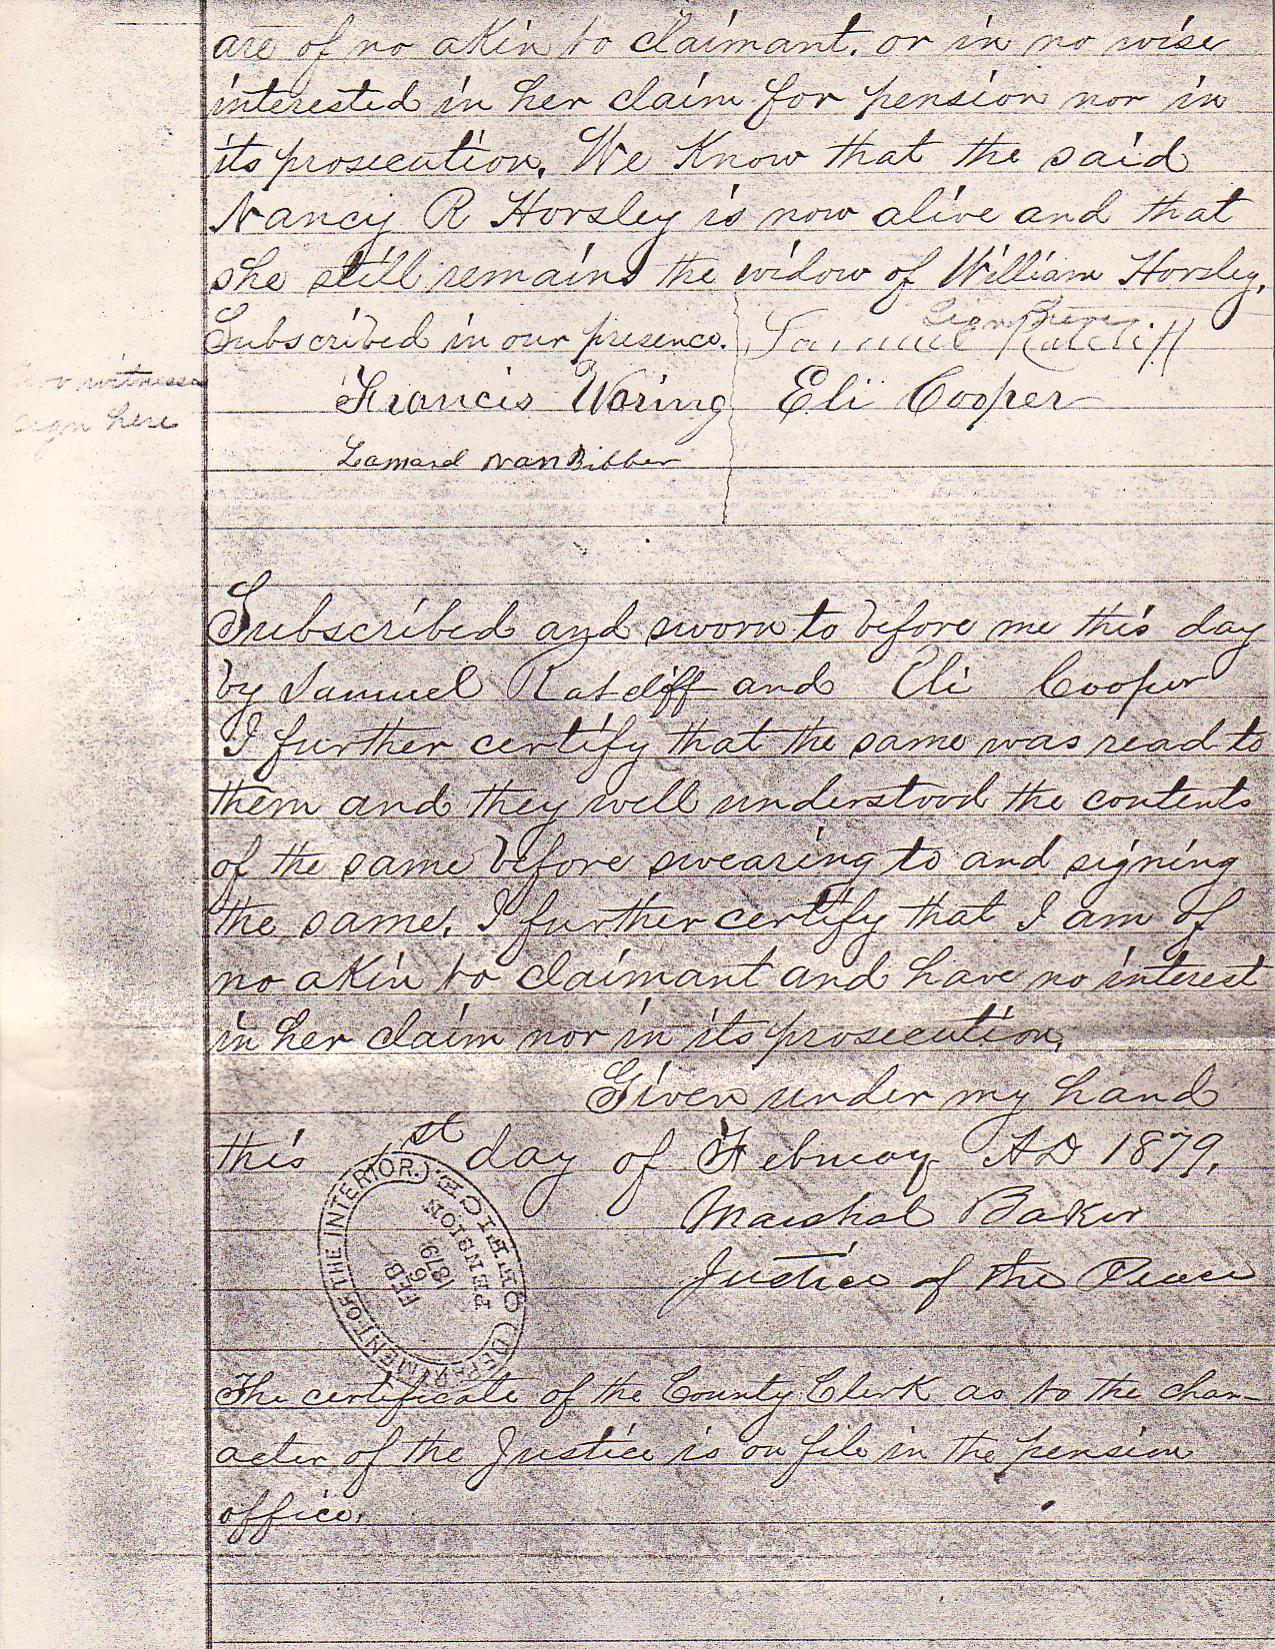 are of no akin to claimant. or in no wise
interested in her claim for pension nor in
its prosecution. We Know that the said
Nancy R Horsley is now alive and that
she still remains the widow of William Horsley.
Subscribed in our presence.
Sign Here
Samuel Ratcliff
witness
sign here
Francis Waring
Eli Cooper
VanBibber
Subscribed and sworn to before me this day
by Samuel Ratcliff and Eli Cooper
I further certify that the same was read to
them and they well understood the contents
of the same before swearing to and signing
the same. I further certify that I am of
no akin to claimant and have no interest
in her claim nor in its prosecution.
Given under my hand
this 1st day of Februay AD 1879.
Marshal Baker
Justice of the Peace
PENSION OFFICE. (DEPARTMENT OF THE INTERIOR.)
FEB 6 1879
The certificate of the County Clerk as to the char-
acter of the Justice is on file in the pension
office.